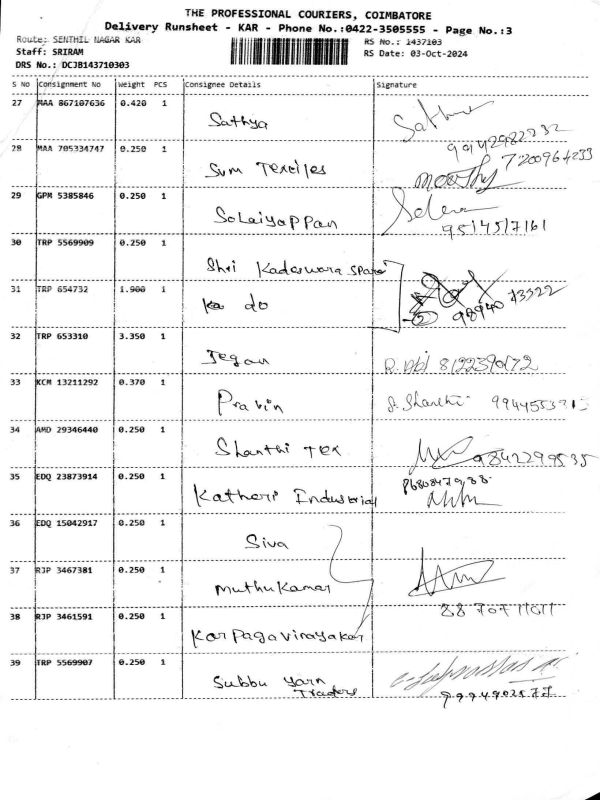 THE PROFESSIONAL COURIERS, COIMBATORE
Delivery Runsheet - KAR - Phone No.:0422-3505555 - Page No.:3
Route: SENTHIL NAGAR KAR
RS No.: 1437103
Staff: SRIRAM
RS Date: 03-Oct-2024
DRS No.: DCJB143710303
S No Consignment No Weight PCS Consignee Details Signature
27 MAA 867107636 0.420 1 Sathya
28 MAA 705334747 0.250 1 Svm Texciles 7200964233
Moorthy
29 GPM 5385846 0.250 1 Solaiyappan
9514517161
30 TRP 5569909 0.250 1 Shri Kadeswara Spare
31 TRP 654732 1.900 1 Ka do 98940 73322
32 TRP 653310 3.350 1 Jegan
33 KCM 13211292 0.370 1 Pravin S. Shanthi
34 AMD 29346440 0.250 1 Shanthi Tex 9842299535
35 EDQ 23873914 0.250 1 Katheri Industrial
36 EDQ 15042917 0.250 1 Siva
37 RJP 3467381 0.250 1 Muthukamar
38 RJP 3461591 0.250 1 Karpagavinayakar
39 TRP 5569907 0.250 1 Subbu Yarn
Traders